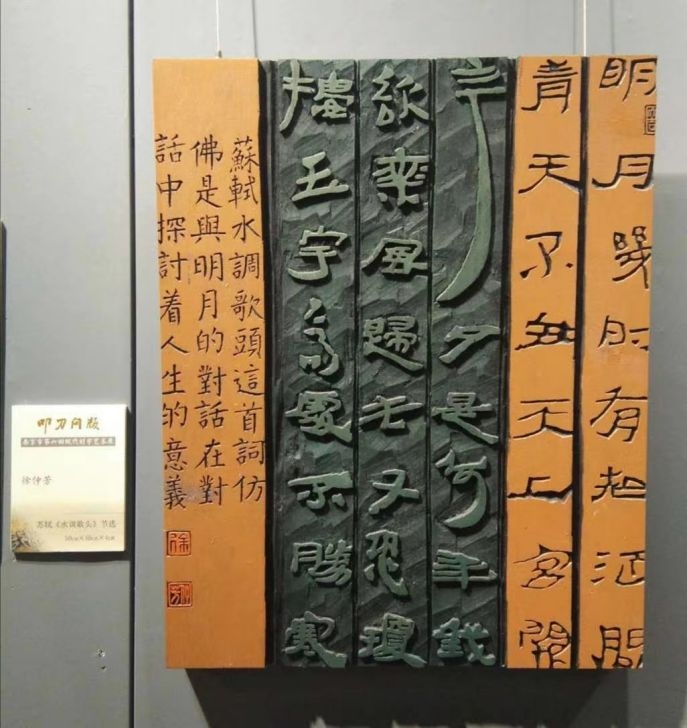 明月幾時有把酒問
青天不知天上宮闕
今夕是何年我
欲乘風歸去又恐瓊
樓玉宇高處不勝寒
蘇軾水調歌頭這首詞仿
佛是與明月的對話在對
話中探討着人生的意義
徐
叩刀问版
徐仲芳
苏轼《水调歌头》节选